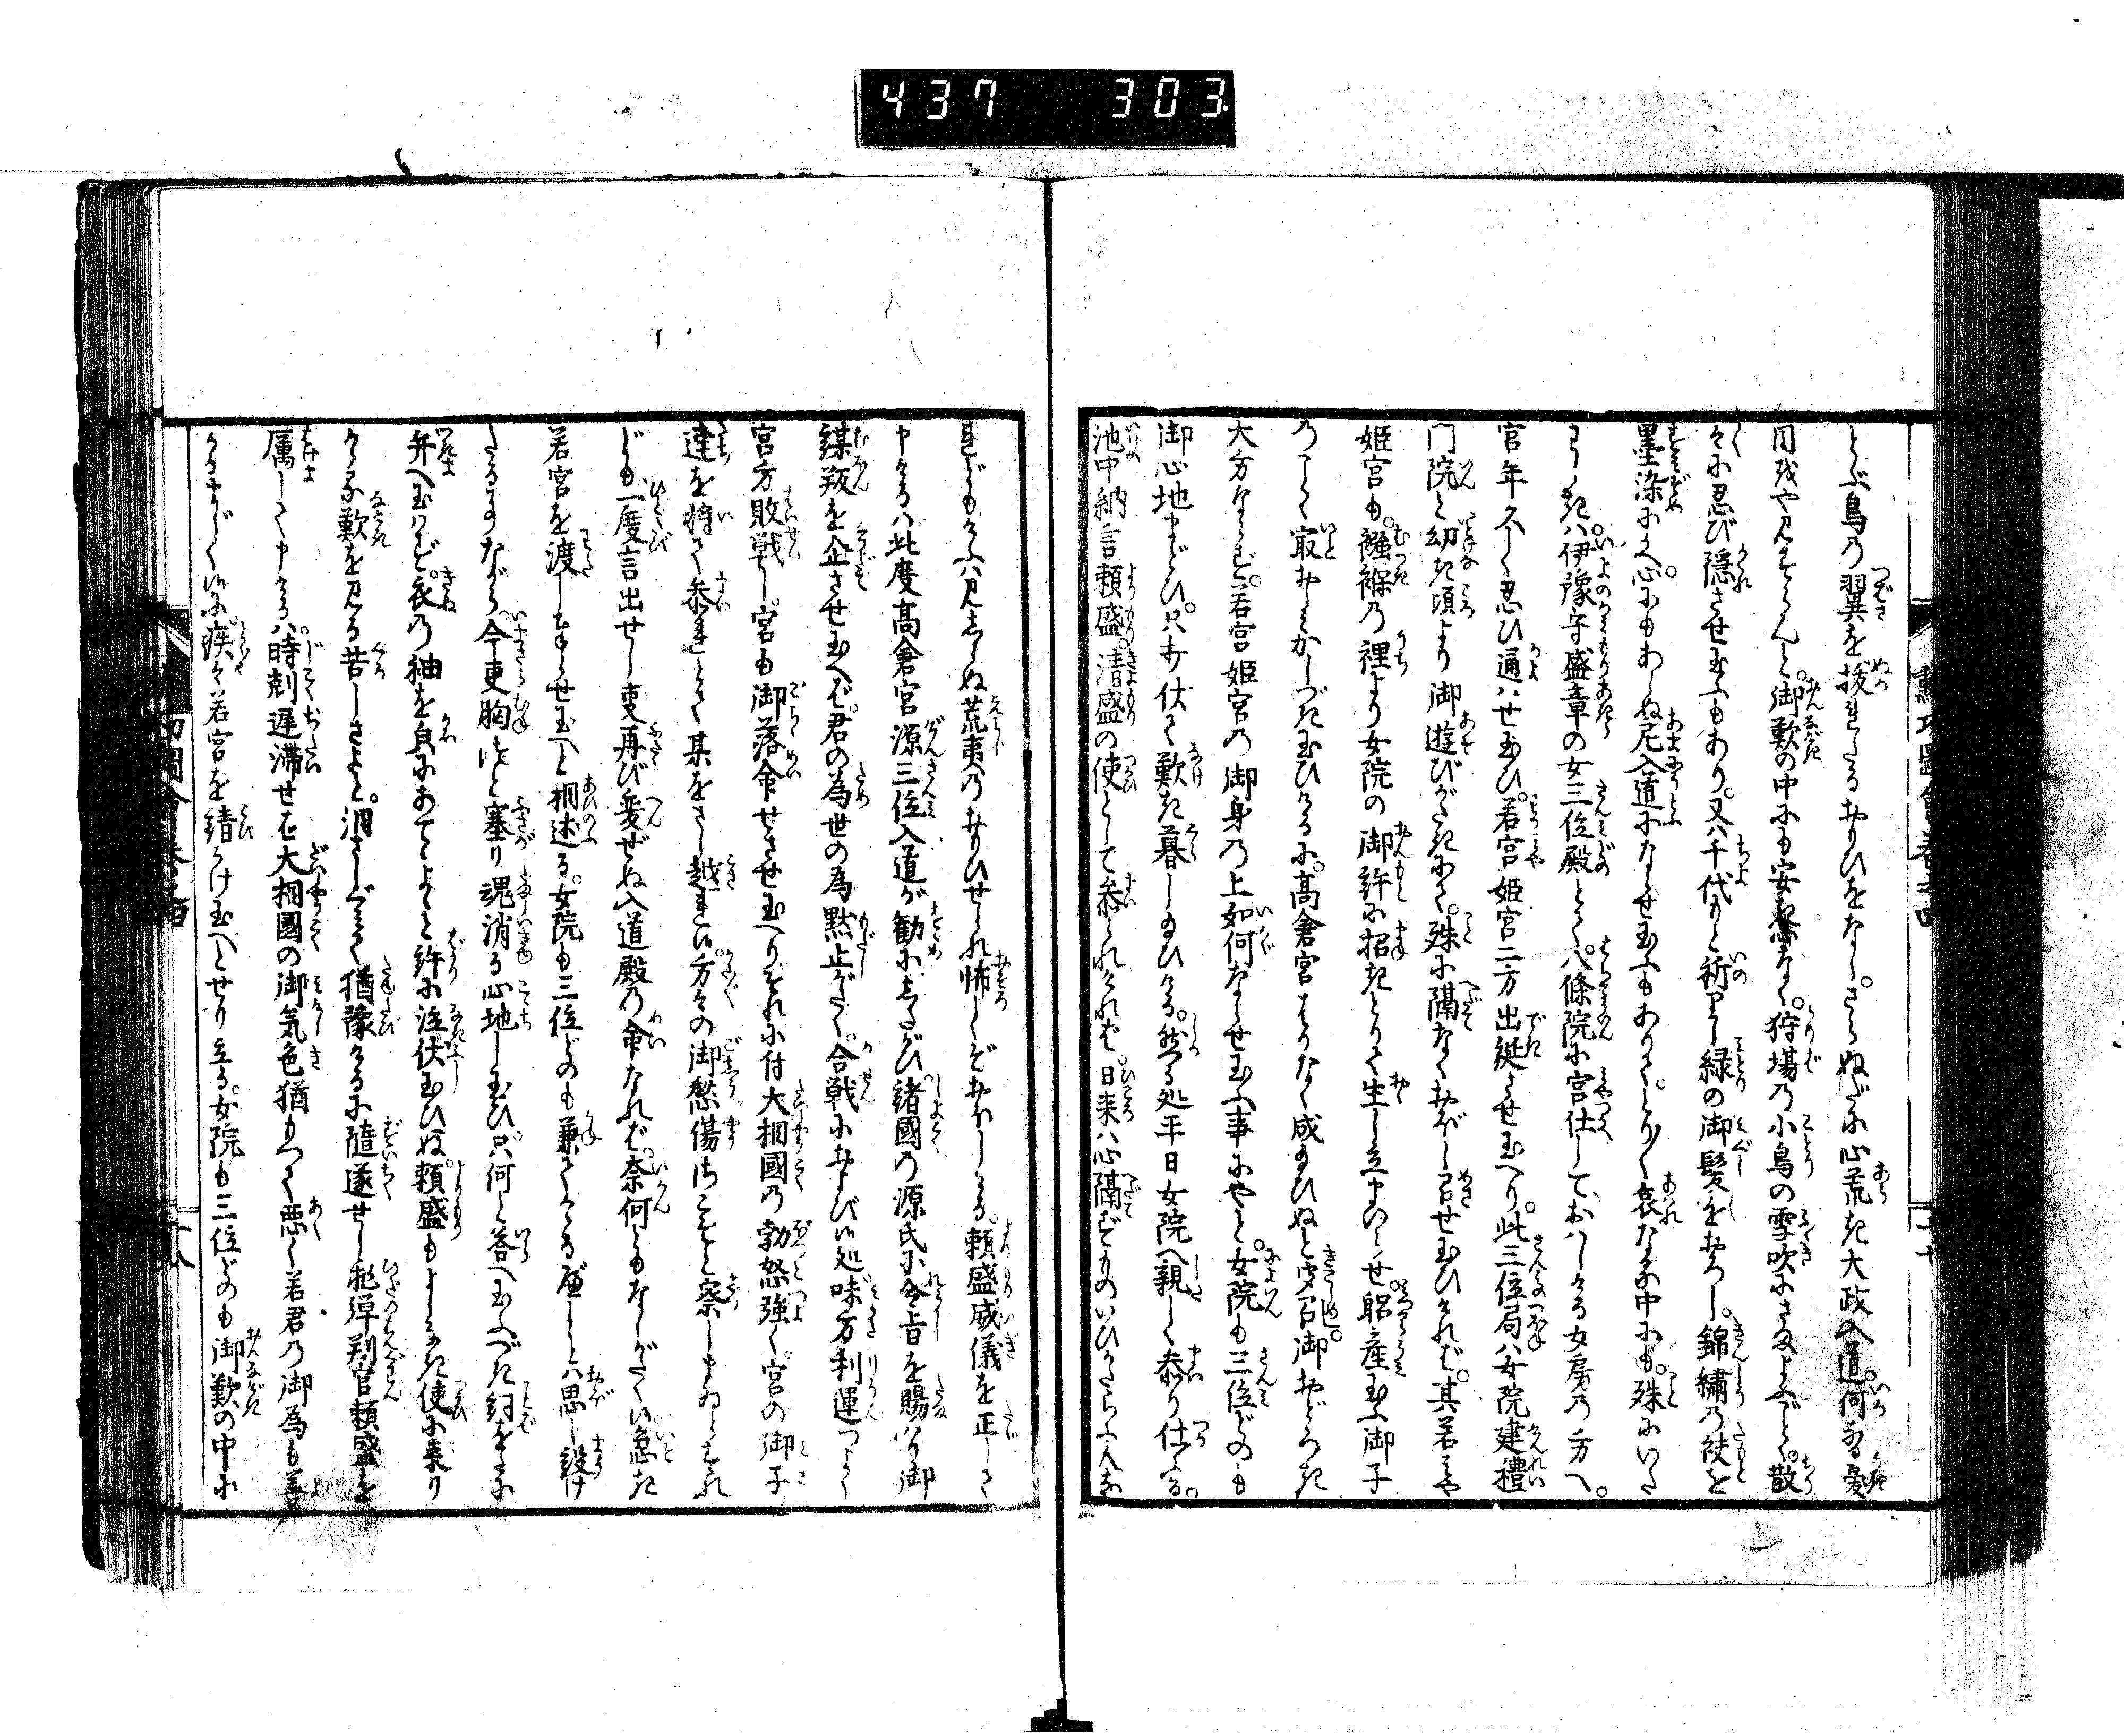 437 303
とぶ鳥乃翼を抜れたるおもひをなし。さらぬだに心荒き大政入道。何なる憂
目をや見すらんと。御歎の中にも安き心なく。狩場乃小鳥の雪吹にさまよふごとく。散
々に忍び隠させ玉ふもあり。又ハ千代かと祈りし緑の御髪をおろし。錦繍乃袂を
墨染にかへ。心にもあらぬ尼入道にならせ玉ふもありて。とり〴〵哀なる中にも。殊にいた
ましきハ。伊豫守盛章の女三位殿とて。八條院に宮仕しておハしける女房乃方へ。
宮年久しく忍び通ハせ玉ひ。若宮姫宮二方出誕させ玉へり。此三位局ハ女院建禮
門院と幼き頃より御遊びがたきにて。殊に隔なくおぼし召せ玉ひけれバ。其若みや
姫宮も。襁褓乃裡より女院の御許に招きとりて生し立まいらせ。
乃ごとく最おしミかしづき玉ひけるに。高倉宮はかなく成玉ひぬと聞召御おどろき
大方ならず。若宮姫宮乃御身乃上如何ならせ玉ふ事にやと。女院も三位どのも
御心地まどひ。只打伏て歎き暮し玉ひける。然る処平日女院へ親しく参り仕へける。
池中納言頼盛。清盛の使として参られけれど。日来ハ心隔ずものいひかたらふ人な
れども。けふハ見しらぬ荒夷乃おもひせられ怖しくぞおぼしける。頼盛威儀を正して
申けるハ此度高倉宮源三位入道が勧にしたがひ諸國乃源氏に令旨を賜ハり御
謀叛を企させ玉へバ君の為世の為黙止がたく。合戦におよび候処味方利運つよく
宮方敗戦し。宮も御落命せさせ玉へりそれに付大相國乃勃怒強く。宮の御子
達を将て参れとて某をさし越れ候。方々の御愁傷さこそと察しまゐらすれ
ども一度言出せし事再び変ぜぬ入道殿乃命なれバ。奈何ともなしがたく候急ぎ
若宮を渡しまゐらせ玉へと相述る。女院も三位どのも兼てかかる
たる事ながら。今更胸はたと塞り魂消る心地し玉ひ。只何と答へ玉ふべき
弁へ玉ハず。衣乃袖を皃にあてよよと許に泣伏玉ひぬ頼盛もよしなき使に来り
かかる歎を見る苦しさよと。泪さしぐミて猶豫けるに随逐せし飛騨判官頼盛を
属して申ける。ハ時刻遅滞せバ大相國の御気色猶もつて悪く若君乃御為も善
かるまじく候に疾々若宮を請うけ玉へとせり立る。女院も三位どのも御歎の中に